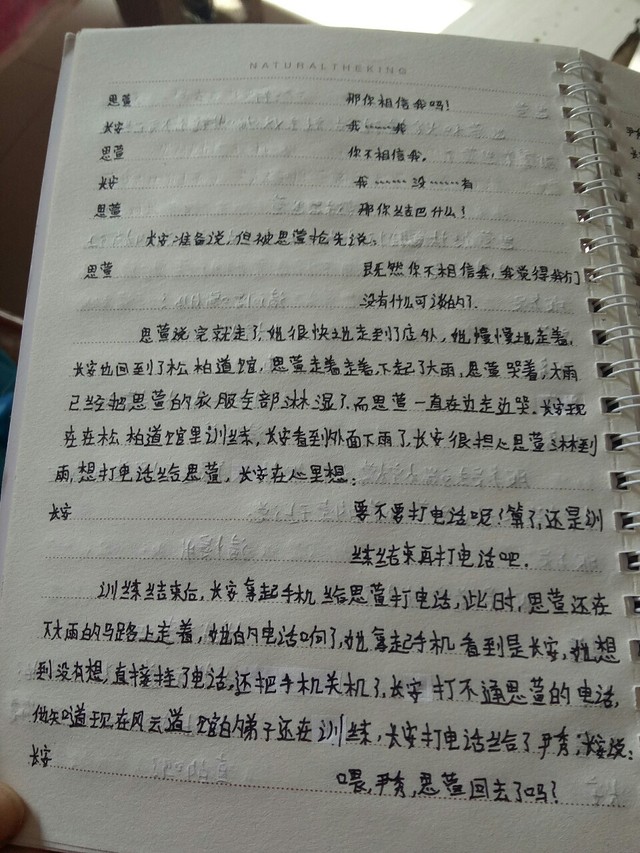 NATURALTHEKING
思萱 那你相信我吗!
长安 我……我
思萱 你不相信我.
长安 我……没……有
思萱 那你结巴什么!
长安准备说,但被思萱抢先说:
思萱 既然你不相信我,我觉得我们
没有什么可谈的了.
思萱说完就走了,她很快地走到了店外,她慢慢地走着,
长安也回到了松柏道馆,思萱走着走着,下起了大雨,思萱哭着,大雨
已经把思萱的衣服全部淋湿了,而思萱一直在边走边哭.长安现
在在松柏道馆里训练,长安看到外面下雨了,长安很担心思萱淋到
雨,想打电话给思萱,长安在心里想:
长安 要不要打电话呢?算了,还是训
练结束再打电话吧.
训练结束后,长安拿起手机给思萱打电话,此时,思萱还在
下大雨的马路上走着,她的电话响了,她拿起手机看到是长安,她想
到没有想,直接挂了电话,还把手机关机了,长安打不通思萱的电话,
他知道现在风云道馆的弟子还在训练,长安打电话给了尹秀,长安说:
长安 喂,尹秀,思萱回去了吗?